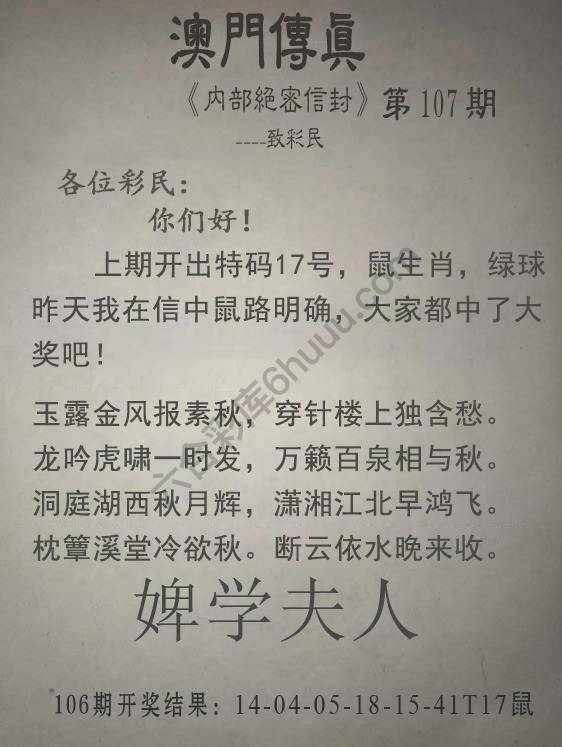 澳門傳眞
《内部絕密信封》第107期
----致彩民
各位彩民：
你们好！
上期开出特码17号，鼠生肖，绿球
昨天我在信中鼠路明确，大家都中了大
奖吧！
玉露金风报素秋，穿针楼上独含愁。
龙吟虎啸一时发，万籁百泉相与秋。
洞庭湖西秋月辉，潇湘江北早鸿飞。
枕簟溪堂冷欲秋。断云依水晚来收。
婢学夫人
106期开奖结果：14-04-05-18-15-41T17鼠
六合彩库6huuu.com